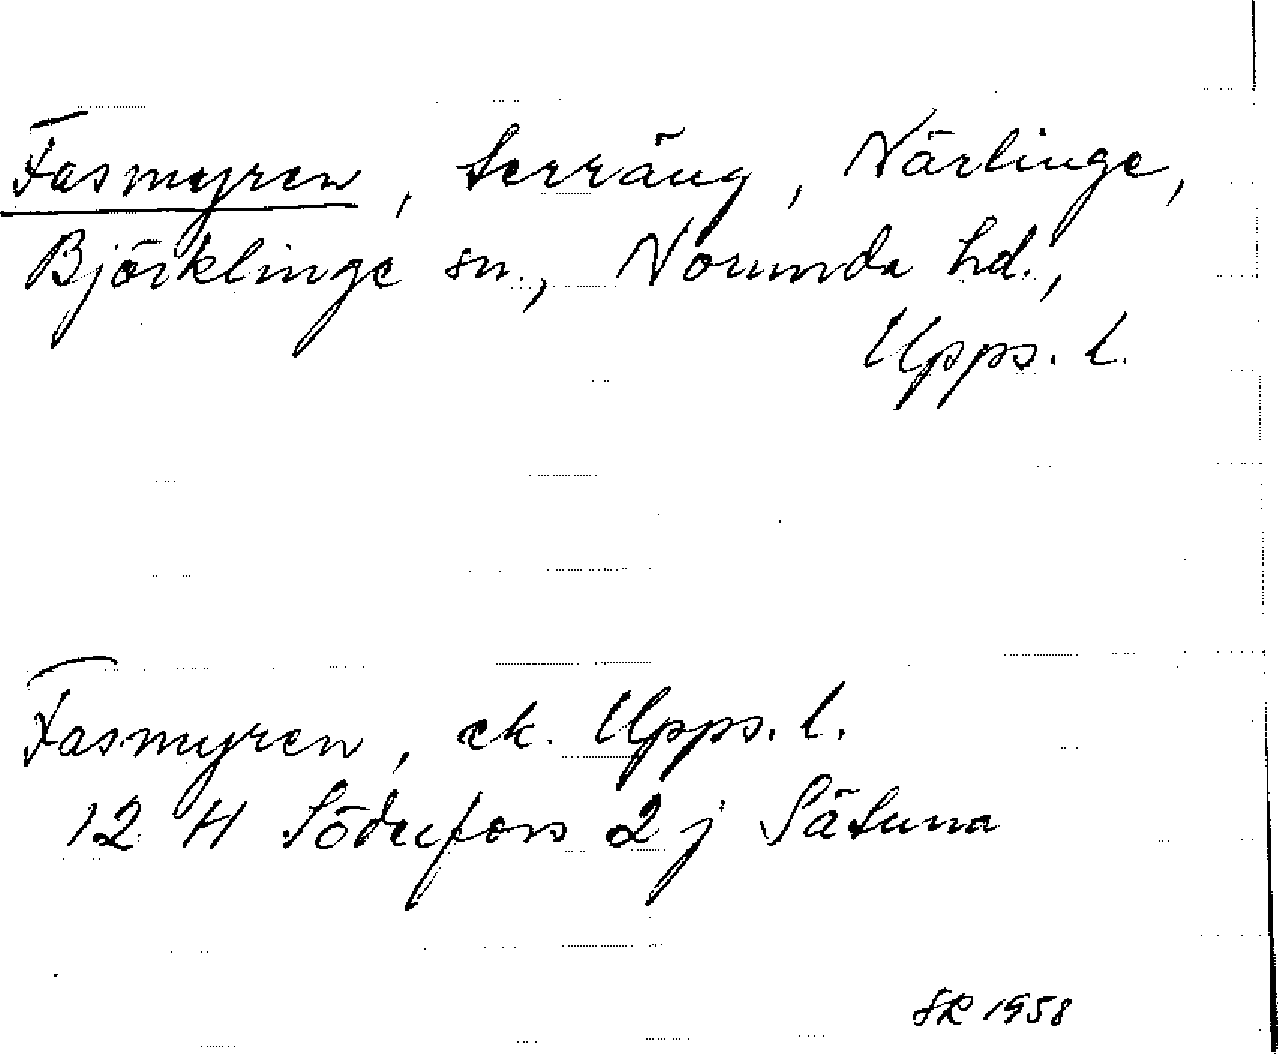 Fasmyren, terräng, Närlinge,
Björklinge sn., Norunda hd.,
Upps. l.
Fasmyren, ek. Upps. l.
12 H Söderfors 2 j Sätuna
SR 1958